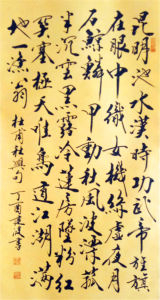 昆明池水漢時功武帝旌旗
在眼中織女機絲虛夜月
石鯨鱗甲動秋風波漂菰
米沉雲黑露冷蓮房墜粉紅
關塞極天惟鳥道江湖滿
地一漁翁 杜甫秋興句 丁酉
書